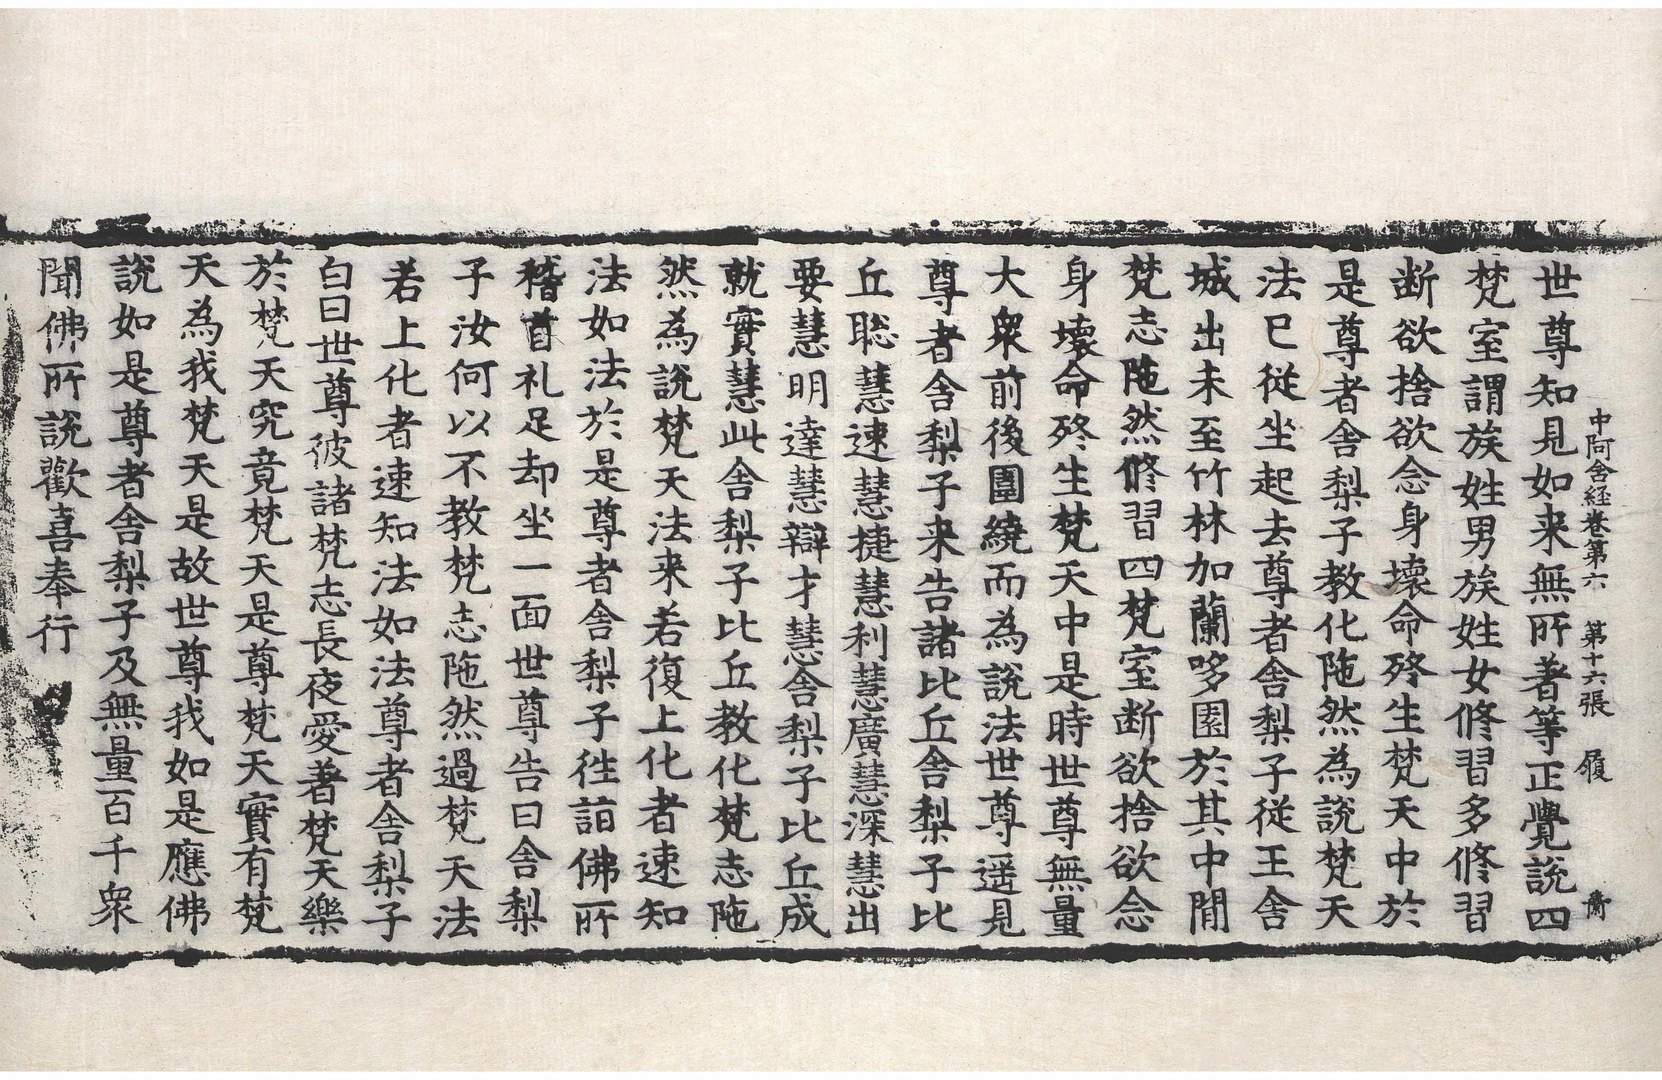 中阿含經卷第六　第十六張　履
世尊知見如来無所著等正覺說四
梵室謂族姓男族姓女修習多修習
断欲捨欲念身壞命終生梵天中於
是尊者舍梨子教化陁然為說梵天
法已從坐起去尊者舍梨子從王舍
城出未至竹林加蘭哆園於其中間
梵志陁然修習四梵室断欲捨欲念
身壞命終生梵天中是時世尊無量
大衆前後圍繞而為說法世尊遥見
尊者舍梨子来告諸比丘舍梨子比
丘聡慧速慧捷慧利慧廣慧深慧出
要慧明達慧辯才慧舍梨子比丘成
就實慧此舍梨子比丘教化梵志陁
然為說梵天法来若復上化者速知
法如法於是尊者舍梨子徃詣佛所
稽首礼足却坐一面世尊告曰舍梨
子汝何以不教梵志陁然過梵天法
若上化者速知法如法尊者舍梨子
白曰世尊彼諸梵志長夜愛著梵天樂
於梵天究竟梵天是尊梵天實有梵
天為我梵天是故世尊我如是應佛
說如是尊者舍梨子及無量百千衆
聞佛所說歡喜奉行